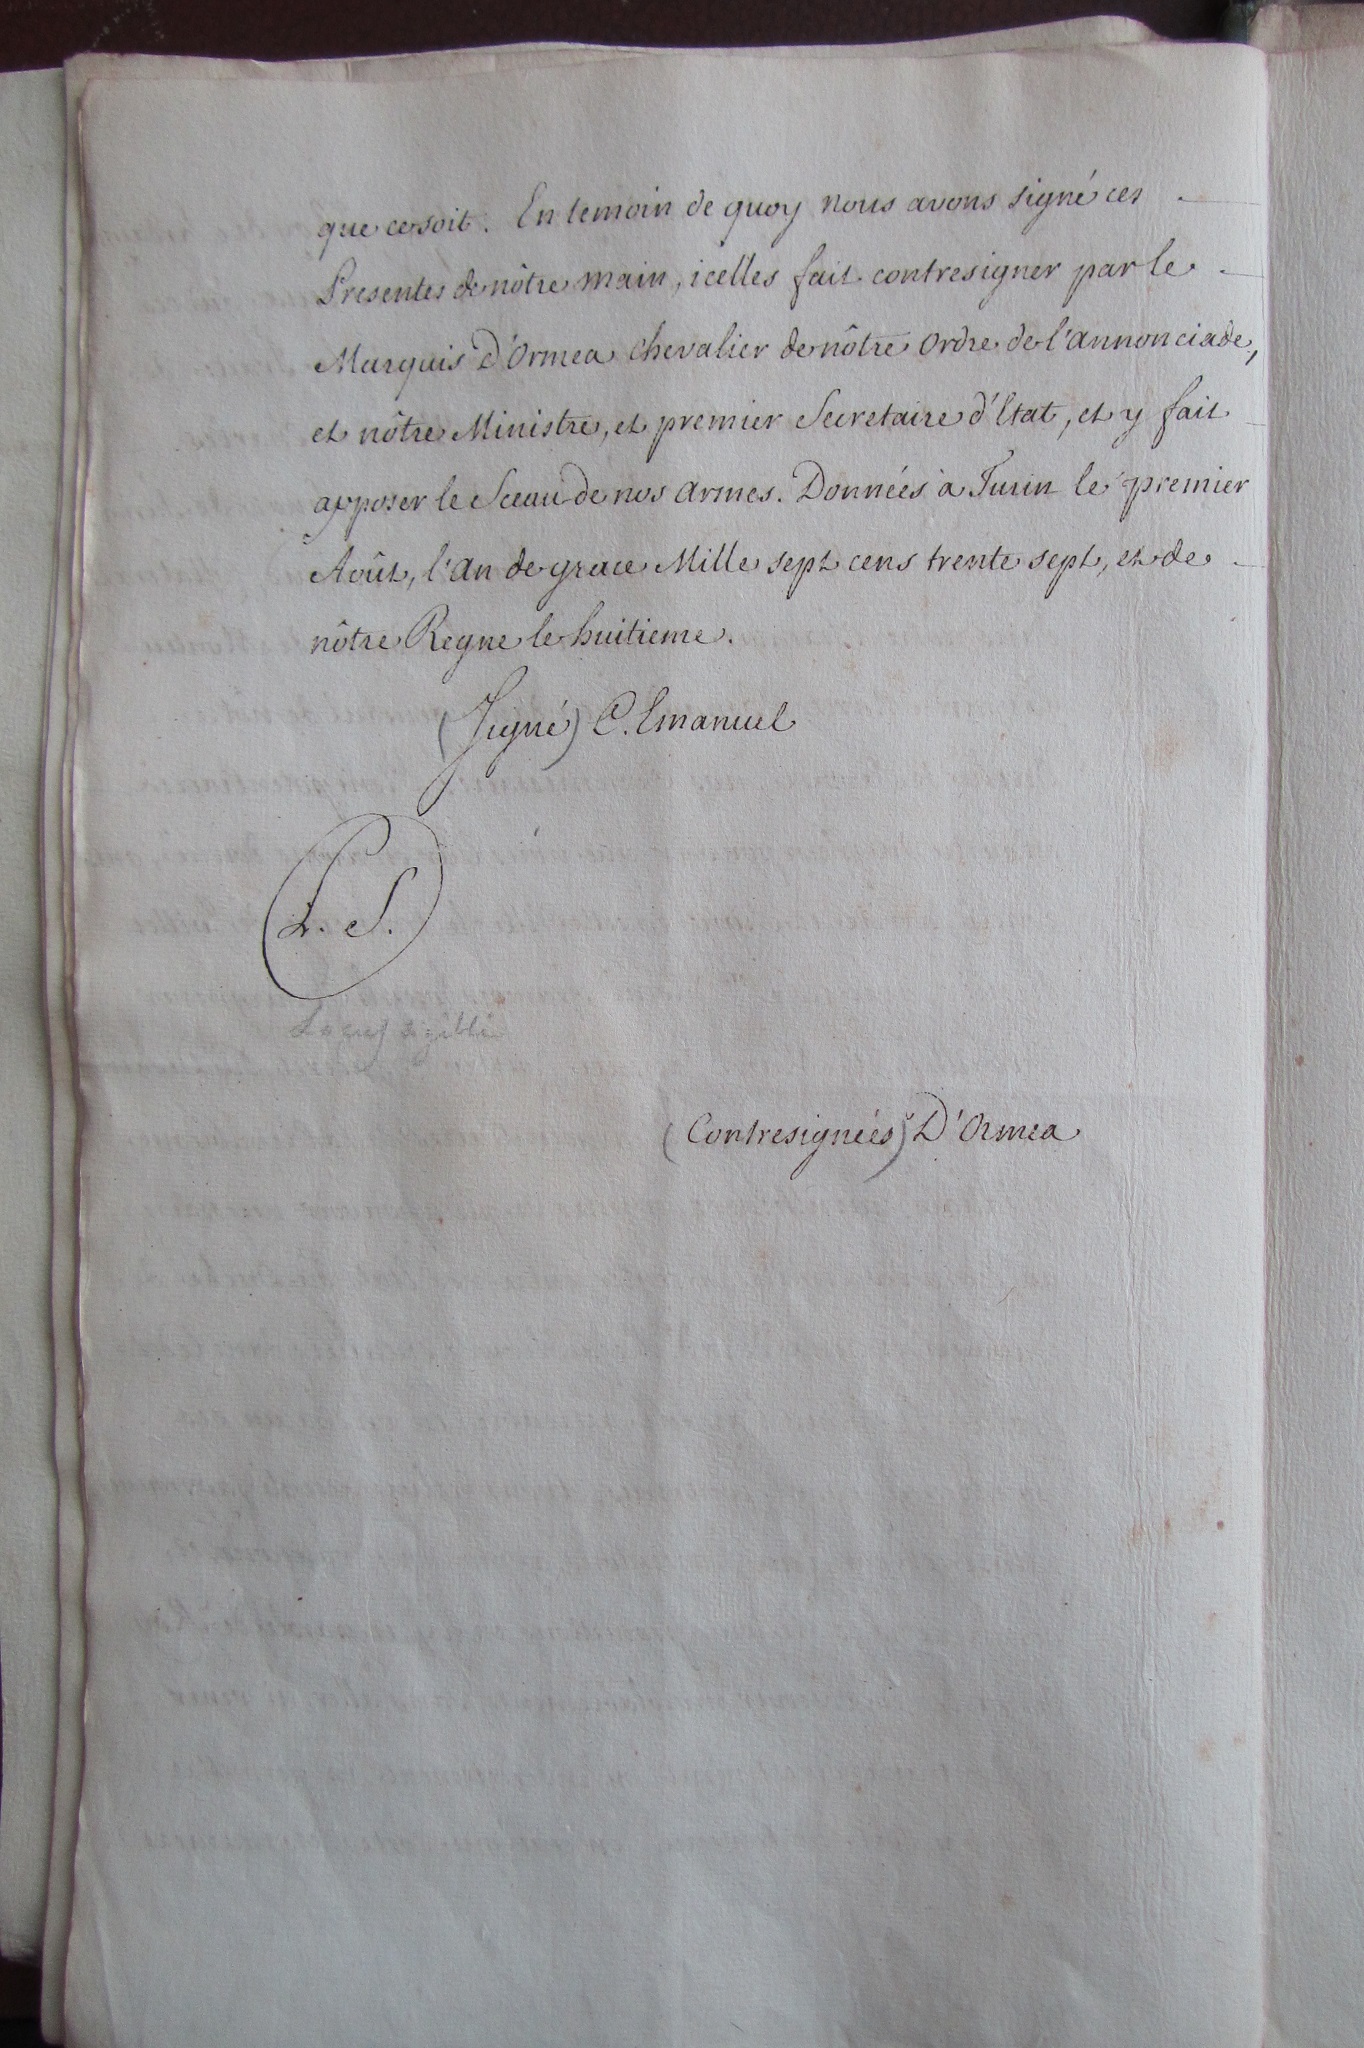 que ce soit. En temoin de quoy nous avons signé ces
Presentes de nôtre main, icelles fait contresigner par le
Marquis D'Ormea Chevalier de nôtre Ordre de l'annonciade,
et nôtre Ministre, et premier Secretaire d'Etat, et y fait
apposer le Sceau de nos armes. Données à Turin le premier
Août, l'an de grace Mille sept cens trente sept, et de
nôtre Regne le huitieme.
(Signé) C. Emanuel
L. S.
Locus sigilli
(Contresignées) D'Ormea